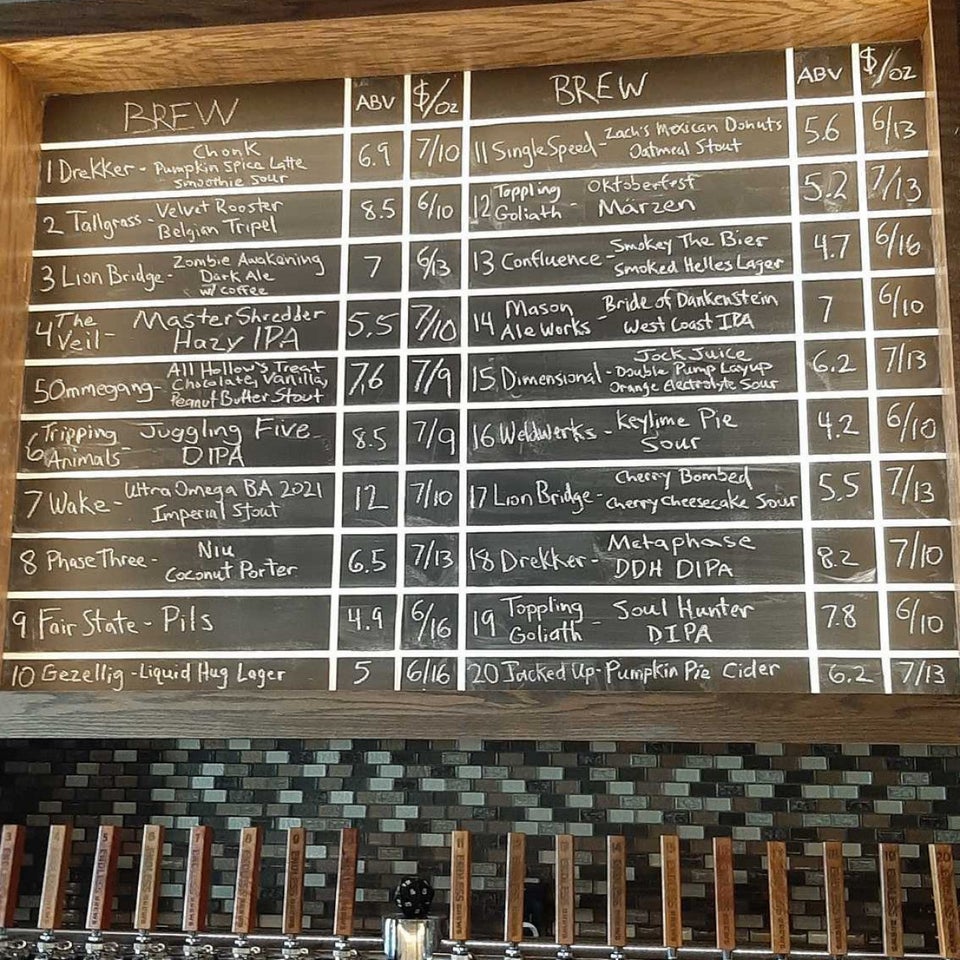 BREW ABV $/oz
1 Drekker - Chonk
Pumpkin Spice Latte
Smoothie Sour 6.9 7/10
2 Tallgrass - Velvet Rooster
Belgian Tripel 8.5 6/10
3 Lion Bridge - Zombie Awakening
Dark Ale
w/ coffee 7 6/13
4 The Veil - Master Shredder
Hazy IPA 5.5 7/10
5 Ommegang - All Hollow's Treat
Chocolate, Vanilla,
Peanut Butter Stout 7.6 7/9
6 Tripping Animals - Juggling Five
DIPA 8.5 7/9
7 Wake - Ultra Omega BA 2021
Imperial Stout 12 7/10
8 Phase Three - Niu
Coconut Porter 6.5 7/13
9 Fair State - Pils 4.9 6/16
10 Gezellig - Liquid Hug Lager 5 6/16
BREW ABV $/oz
11 SingleSpeed - Zach's Mexican Donuts
Oatmeal Stout 5.6 6/13
12 Toppling Goliath - Oktoberfest
Märzen 5.2 7/13
13 Confluence - Smokey The Bier
Smoked Helles Lager 4.7 6/16
14 Mason Ale Works - Bride of Dankenstein
West Coast IPA 7 6/10
15 Dimensional - Jock Juice
Double Pump Layup
Orange Electrolyte Sour 6.2 7/13
16 Weldwerks - Keylime Pie
Sour 4.2 6/10
17 Lion Bridge - Cherry Bombed
Cherry Cheesecake Sour 5.5 7/13
18 Drekker - Metaphase
DDH DIPA 8.2 7/10
19 Toppling Goliath - Soul Hunter
DIPA 7.8 6/10
20 Jacked Up - Pumpkin Pie Cider 6.2 7/13